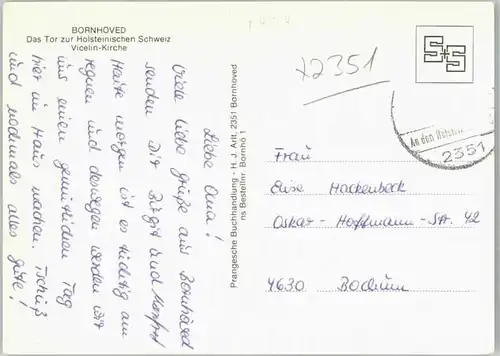 BORNHÖVED
Das Tor zur Holsteinischen Schweiz
Vicelin-Kirche
Liebe Oma!
Viele liebe Grüße aus Bornhöved
senden Dir Birgit und Manfred
Heute morgen ist es tüchtig am
regnen und deswegen werden wir
uns einen gemütlichen Tag
hier im Haus machen. Tschüß
und nochmals alles
gute!
Prangesche Buchhandlung - H. J. Arlt, 2351 Bornhöved
ns Bestellnr. Bornhö 1
2351
S+S
An den Holstein
2351
Frau
Elise Hackenbeck
Oskar-Hoffmann-Str. 42
4630 Bochum